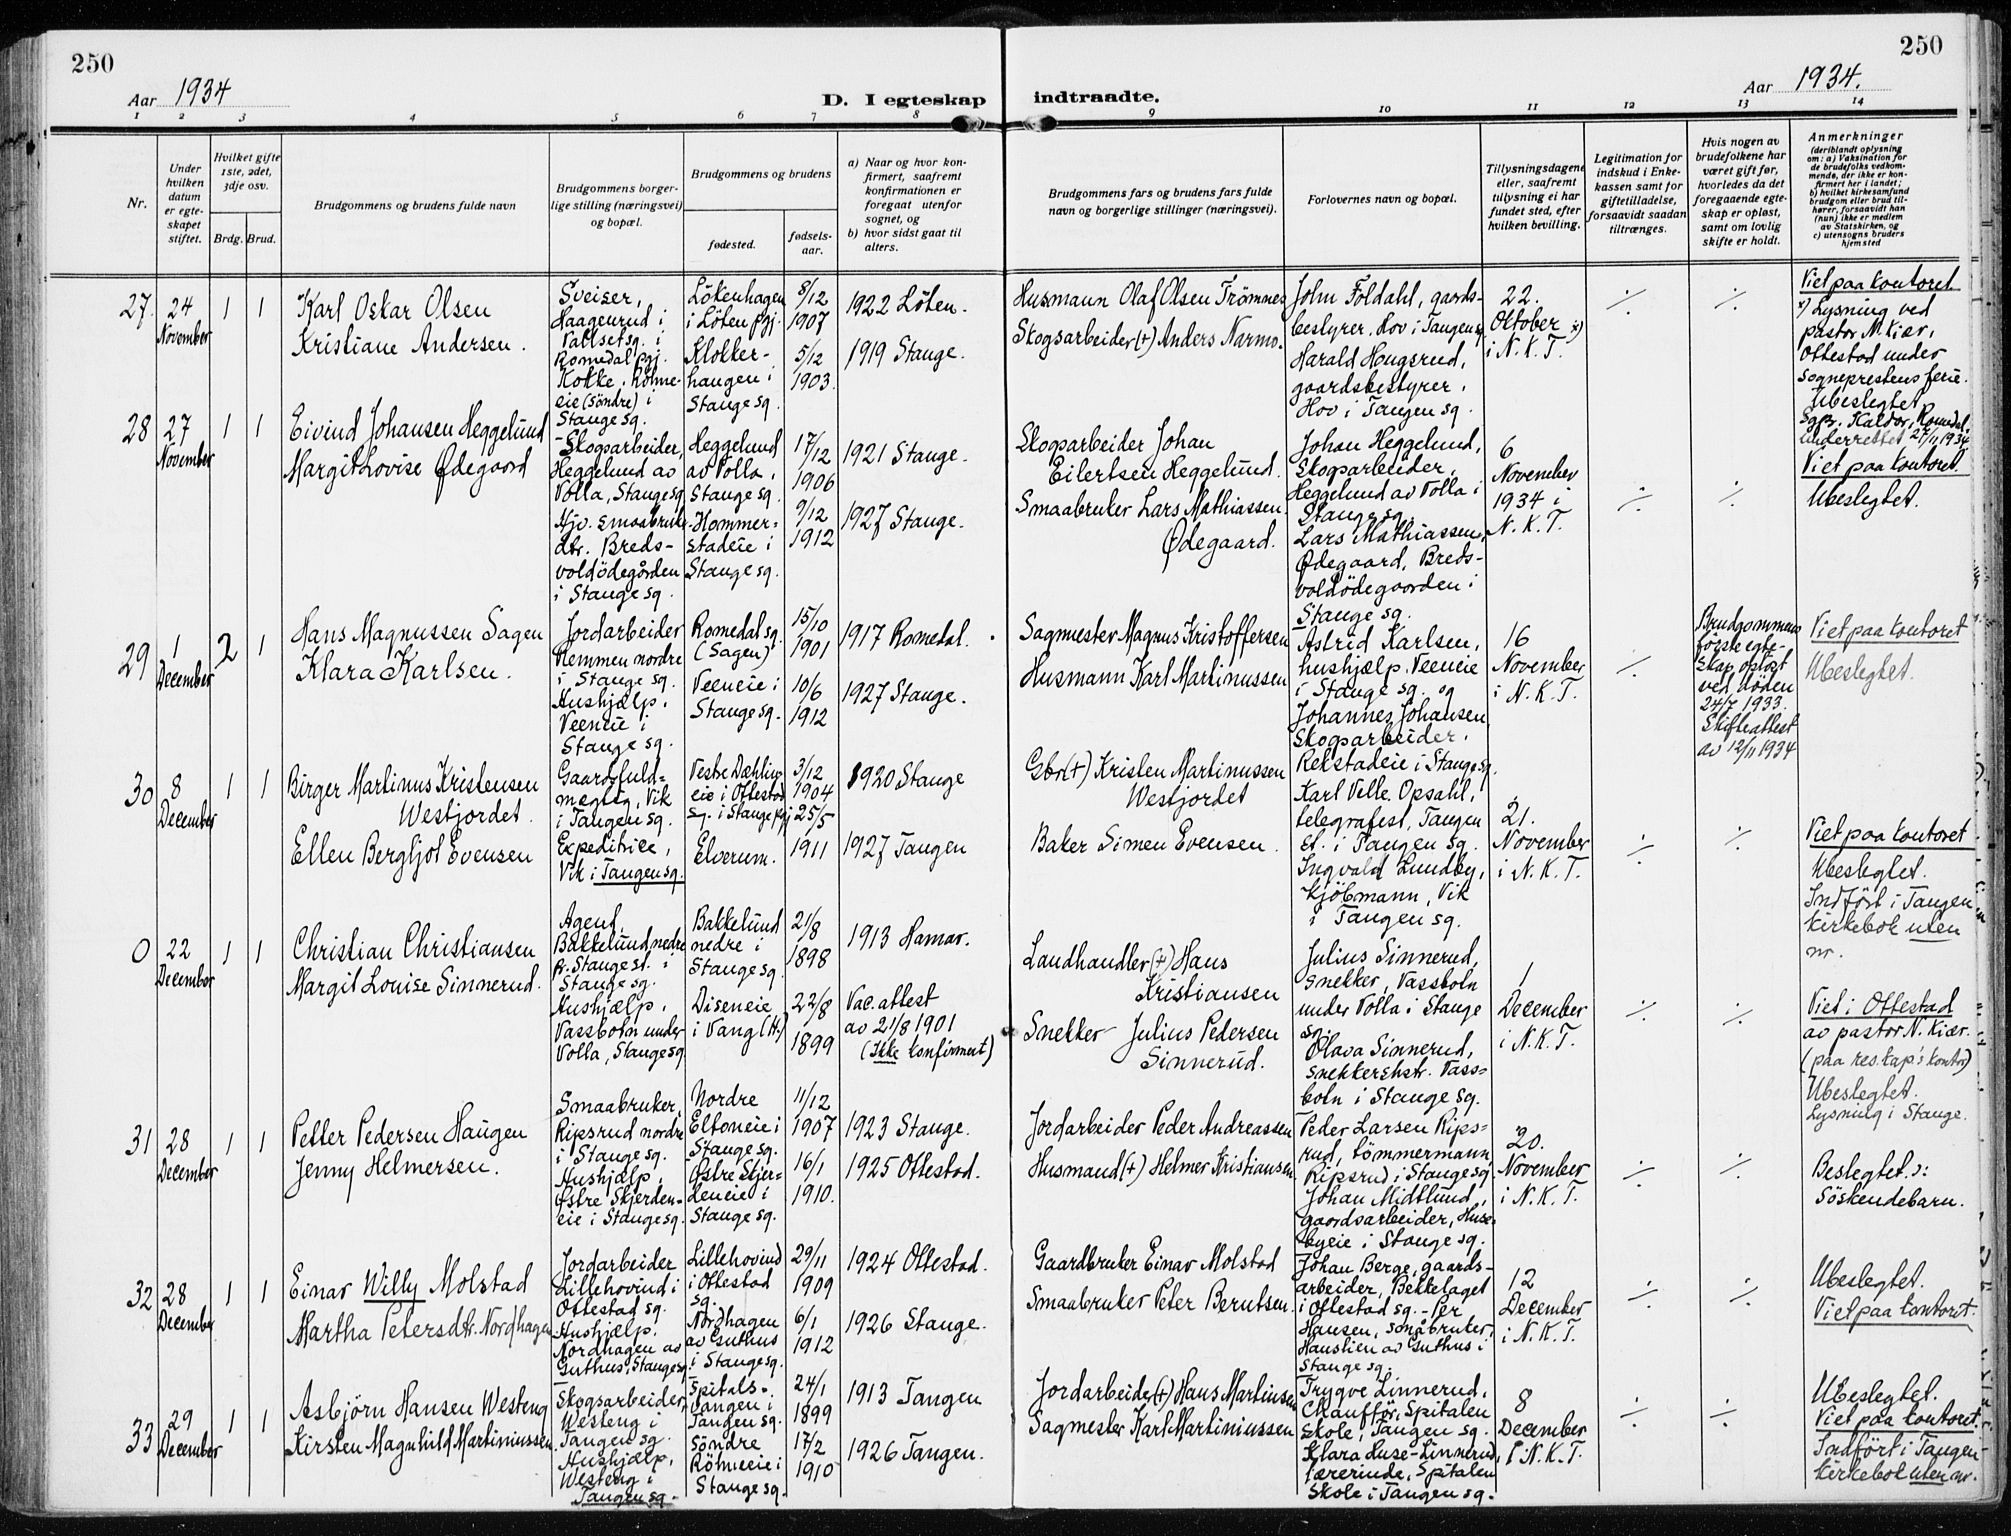 250
250
Aar 1934
D. I egteskap
indtraadte.
Aar 1934.
1 2 3 4 5 6 7 8 9 10 11 12 13 14
Nr.
Under
hvilken
datum
er egte-
skapet
stiftet.
Hvilket gifte
1ste, 2det,
3dje osv.
Brdg. Brud.
Brudgommens og brudens fulde navn
Brudgommens borger-
lige stilling (næringsvei)
og bopæl.
Brudgommens og brudens
fødested.
fødsels-
aar.
a) Naar og hvor kon-
firmert, saafremt
konfirmationen er
foregaat utenfor
sognet, og
b) hvor sidst gaat til
alters.
Brudgommens fars og brudens fars fulde
navn og borgerlige stillinger (næringsvei).
Forlovernes navn og bopæl.
Tillysningsdagene
eller, saafremt
tillysning ei har
fundet sted, efter
hvilken bevilling.
Legitimation for
indskud i Enke-
kassen samt for
giftetilladelse,
forsaavidt saadan
tiltrænges.
Hvis nogen av
brudefolkene har
været gift før,
hvorledes da det
foregaaende egte-
skap er opløst,
samt om lovlig
skifte er holdt.
Anmerkninger
(deriblandt oplysning
om: a) Vaksination for
de brudefolks vedkom-
mende, der ikke er kon-
firmert her i landet;
b) hvilket kirkesamfund
brudgom eller brud til-
hører, forsaavidt han
(hun) ikke er medlem
av Statskirken, og
c) utensogns bruders
hjemsted
27.
24
November
1 1
Karl Oskar Olsen
Kristiane Andersen.
Sveiser,
Haagenrud i
Vallset sg. i
Romedal pgj.
Kokke. Rømme-
eie (søndre) i
Stange sg.
Løkenhagen
i Løten pgj.
Klokker-
haugen i
Stange sg.
8/12
1907
5/12
1903.
1922 Løten.
1919 Stange.
Husmann Olaf Olsen Trømnes
Skogsarbeider (+) Anders Narmo.
John Foldahl, gaards-
bestyrer. Hov i Tangen sg
Harald Haugsrud,
gaardsbestyrer.
Hov i Tangen sg.
22.
Oktober x)
i N. K. T.
Viet paa kontoret
x) Lysning ved
pastor N. Kiær,
Ottestad under
sogneprestens ferie.
Ubeslegtet
Sgpr. Kaldor, Romedal,
underrettet 27/11 1934.
28
27
November
1 1
Eivind Johansen Heggelund
Margit Lovise Ødegaard
Skogsarbeider,
Heggelund av
Volla, Stange sg.
Hjv. smaabruk-
dtr. Breds-
voldödegården
i Stange sg.
Heggelund
av Volla,
Stange sg.
Hommer-
stadeie i
Stange sg.
17/12
1906
9/12
1912
1921 Stange.
1927 Stange.
Skogsarbeider Johan
Eilertsen Heggelund.
Smaabruker Lars Mathiassen
Ødegaard.
Johan Heggelund,
skogsarbeider,
Heggelund av Volla i
Stange sg.
Lars Mathiassen
Ødegaard, Breds-
voldödegaarden i
Stange sg.
6
November
1934 i
N. K. T.
Viet paa kontoret.
Ubeslegtet.
29
1
December
2 1
Hans Magnussen Sagen
Klara Karlsen.
Jordarbeider
Hemmen nordre
i Stange sg.
Hushjælp,
Veeneie i
Stange sg.
Romedal sg.
(Sagen)
Veeneie i
Stange sg.
15/10
1901
10/6
1912
1917 Romedal.
1927 Stange.
Sagmester Magnus Kristoffersen
Husmann Karl Martinussen
Astrid Karlsen,
hushjælp. Veeneie
i Stange sg. og
Johannes Johansen
Skogsarbeider.
Rekstadeie i Stange sg.
16
November
i N. K. T.
Brudgommens
første egte-
skap opløst
ved døden
24/7 1933.
Skifteattest
av 12/11 1934
Viet paa kontoret
Ubeslegtet.
30
8
December
1 1
Birger Martinus Kristensen
Westjordet.
Ellen Bergljot Evensen
Gaardsfuld-
mægtig, Vik
i Tangen sg.
Expeditrice,
Vik i Tangen sg.
Vestre Dæhlin-
eie i Ottestad
sg. i Stange pgj
Elverum.
3/12
1904
25/5
1911
1920 Stange
1927 Tangen
Gbr. (+) Kristen Martinussen
Westjordet
Baker Simen Evensen.
Karl Velle Opsahl,
telegrafist, Tangen
st. i Tangen sg.
Ingvald Lundby,
kjöbmann, Vik
i Tangen sg.
21.
November
i N. K. T.
Viet paa kontoret
Ubeslegtet.
Indført i Tangen
kirkebok uten
nr.
0
22
December
1 1
Christian Christiansen
Margit Louise Sinnerud.
Agent.
Bakkelund nedre
pr. Stange st. i
Stange sg.
Hushjælp,
Vassbotn under
Volla, Stange sg
Bakkelund
nedre i
Stange sg.
Diseneie
i Vang (H.)
21/8
1898
22/8
1899
1913 Hamar.
Vac. attest
av 21/8 1901
(Ikke konfirmert)
Landhandler (+) Hans
Kristiansen
Snekker Julius Pedersen
Sinnerud.
Julius Sinnerud,
snekker, Vassbotn
under Volla i Stange
sg.
Olava Sinnerud,
snekkershstr. Vass-
botn i Stange sg.
1
December
i N. K. T.
Viet i Ottestad
av pastor N. Kiær.
(paa res. kap's kontor)
Ubeslegtet.
Lysning i Stange.
31
28
December
1 1
Petter Pedersen Haugen
Jenny Helmersen.
Smaabruker,
Ripsrud nordre
i Stange sg.
Hushjælp,
Østre Skjerden-
eie i Stange sg.
Nordre
Eltoneie i
Stange sg.
Østre Skjer-
deneie i
Stange sg.
11/12
1907
16/1
1910.
1923 Stange.
1925 Ottestad.
Jordarbeider Peder Andreassen
Husmand (+) Helmer Kristiansen
Peder Larsen Rips-
rud, tömmermann
Ripsrud i Stange sg
Johan Midtlund,
gaardsarbeider, Huse-
byeie i Stange sg.
20.
November
i N. K. T.
Beslegtet ɔ:
Söskendebarn.
32
28
December
1 1
Einar Willy Molstad
Martha Petersdtr. Nordhagen
Jordarbeider
Lillehovind i
Ottestad sg.
Hushjælp.
Nordhagen av
Guthus, Stange sg
Lillehovind
i Ottestad
sg.
Nordhagen
av Guthus
i Stange sg.
29/11
1909
6/1
1912
1924 Ottestad.
1926 Stange.
Gaardbruker Einar Molstad
Smaabruker Peter Berntsen.
Johan Berge, gaards-
arbeider, Bekkelaget
i Ottestad sg. - Per
Hansen, småbruker,
Haustien av Guthus i
Stange sg.
12
December
i N. K. T.
Ubeslegtet.
Viet paa kontoret.
33
29
December
1 1
Asbjörn Hansen Westeng
Kirsten Magnhild Martiniussen
Skogsarbeider,
Westeng i
Tangen sg.
Hushjælp,
Westeng i
Tangen sg.
Spitals-
tangen i
Tangen sg.
Søndre
Römeeie i
Stange sg.
24/1
1899
17/2
1910
1913 Tangen
1926 Tangen.
Jordarbeider (+) Hans Martinsen
Sagmester Karl Martiniussen
Trygve Linnerud,
Chaufför, Spitalen
skole, Tangen sg.
Klara Huse-Linnerud,
lærerinde, Spitalen
skole i Tangen sg.
8
December
i N. K. T.
Ubeslegtet.
Viet paa kontoret.
Indført i Tangen
kirkebok uten nr.